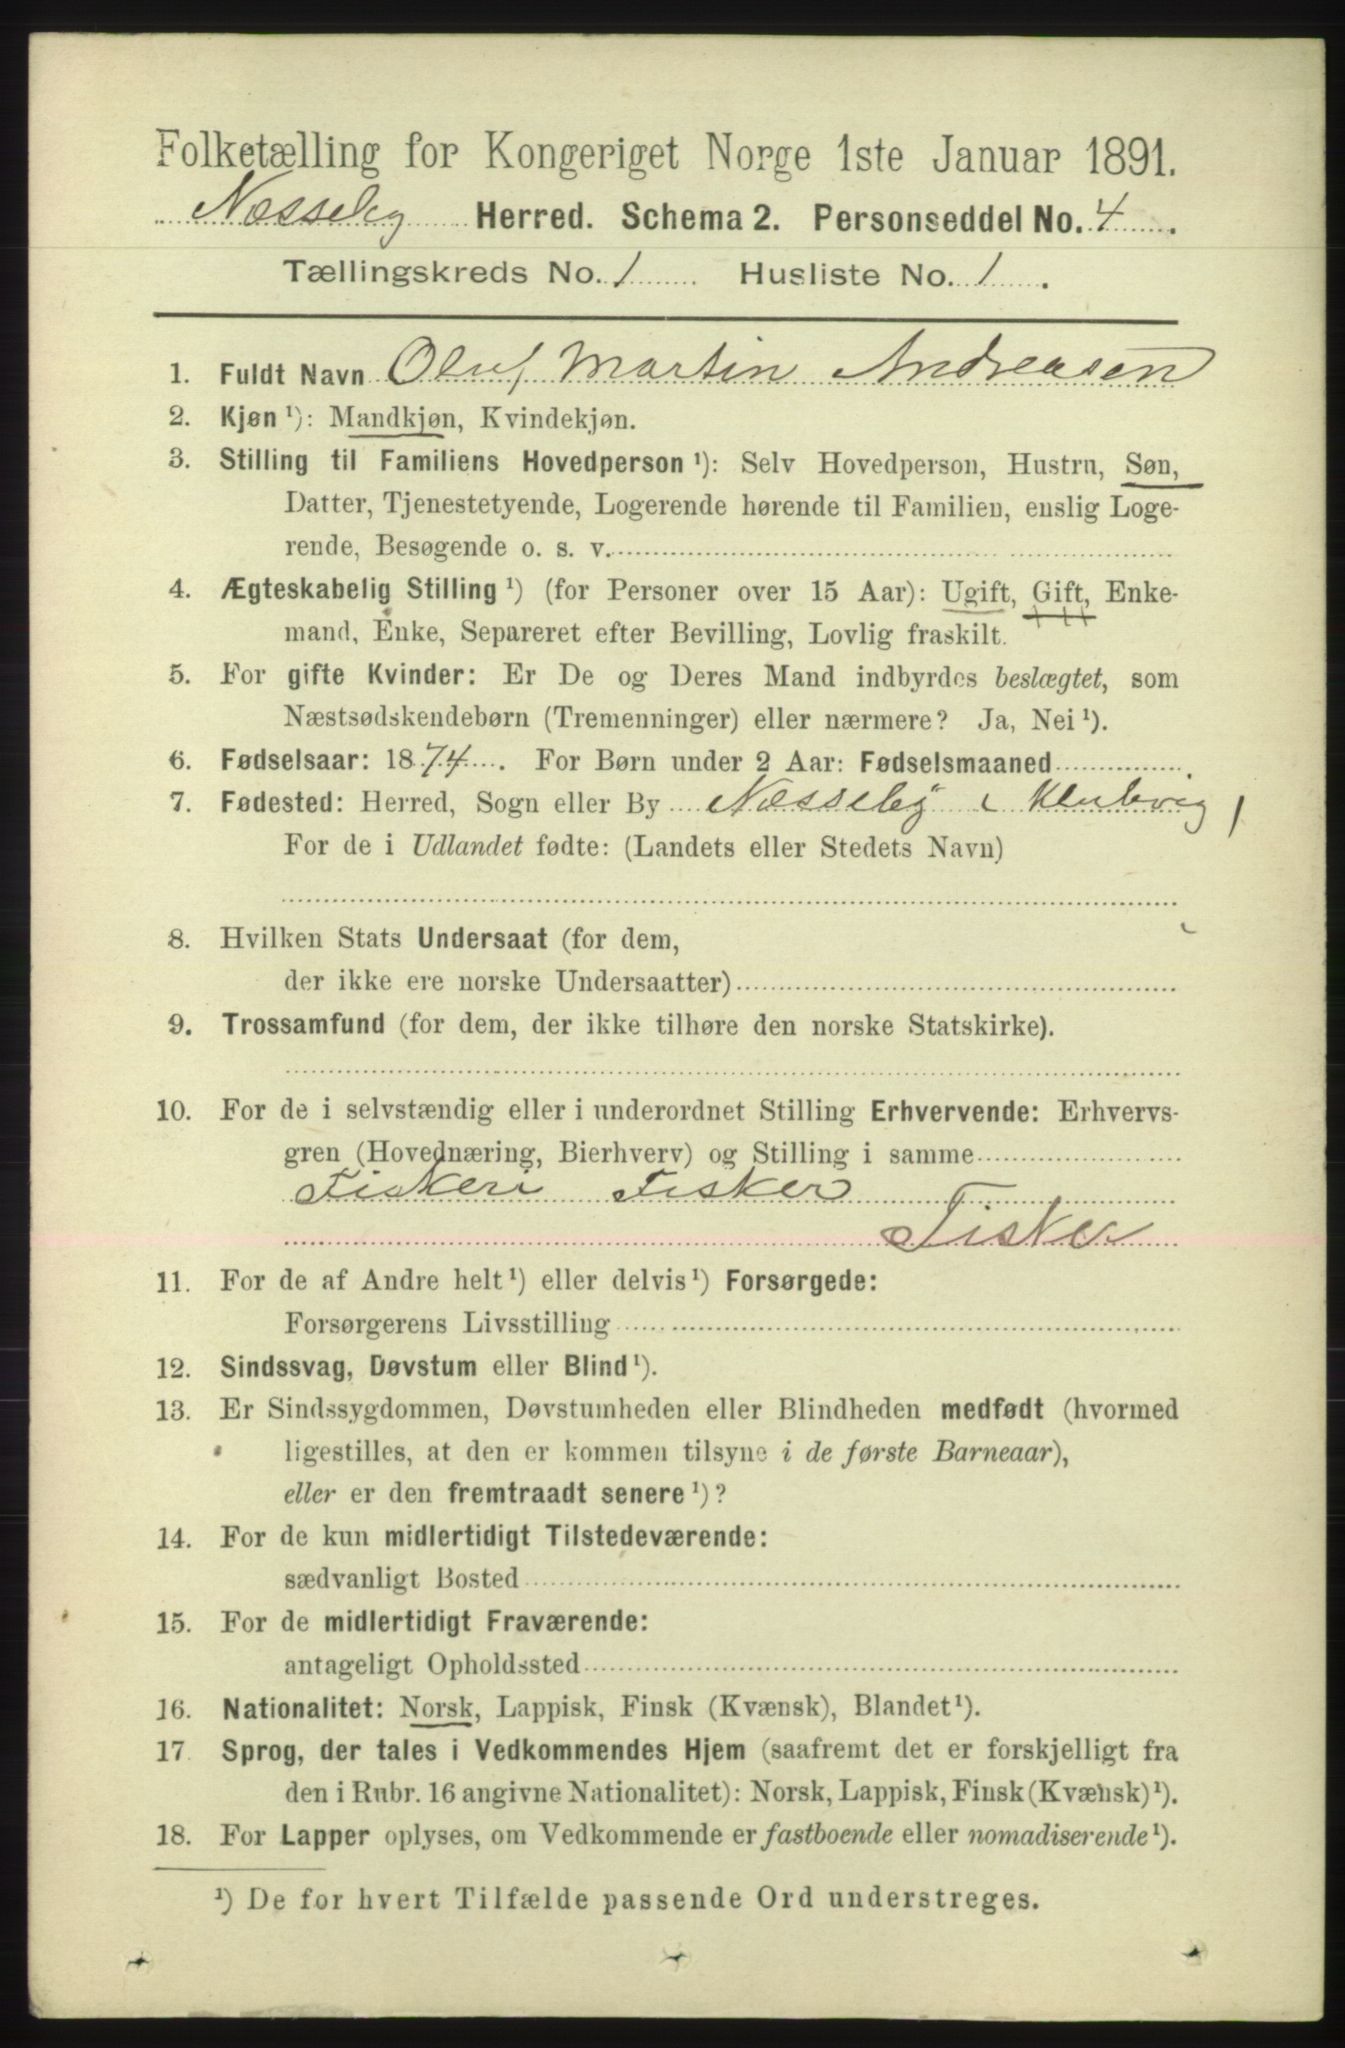 Folketælling for Kongeriget Norge 1ste Januar 1891.
Næsseby Herred. Schema 2. Personseddel No. 4.
Tællingskreds No. 1 Husliste No. 1.
1. Fuldt Navn Oluf Martin Andreasen
2. Kjøn ¹): Mandkjøn, Kvindekjøn.
3. Stilling til Familiens Hovedperson ¹): Selv Hovedperson, Hustru, Søn,
Datter, Tjenestetyende, Logerende hørende til Familien, enslig Loge-
rende, Besøgende o. s. v.
4. Ægteskabelig Stilling ¹) (for Personer over 15 Aar): Ugift, Gift, Enke-
mand, Enke, Separeret efter Bevilling, Lovlig fraskilt.
5. For gifte Kvinder: Er De og Deres Mand indbyrdes beslægtet, som
Næstsødskendebørn (Tremenninger) eller nærmere? Ja, Nei ¹).
6. Fødselsaar: 1874. For Børn under 2 Aar: Fødselsmaaned
7. Fødested: Herred, Sogn eller By Næsseby i Klubvig
For de i Udlandet fødte: (Landets eller Stedets Navn)
8. Hvilken Stats Undersaat (for dem,
der ikke ere norske Undersaatter)
9. Trossamfund (for dem, der ikke tilhøre den norske Statskirke).
10. For de i selvstændig eller i underordnet Stilling Erhvervende: Erhvervs-
gren (Hovednæring, Bierhverv) og Stilling i samme
Fiskeri Fisker
Fisker
11. For de af Andre helt ¹) eller delvis ¹) Forsørgede:
Forsørgerens Livsstilling
12. Sindssvag, Døvstum eller Blind ¹).
13. Er Sindssygdommen, Døvstumheden eller Blindheden medfødt (hvormed
ligestilles, at den er kommen tilsyne i de første Barneaar),
eller er den fremtraadt senere ¹)?
14. For de kun midlertidigt Tilstedeværende:
sædvanligt Bosted
15. For de midlertidigt Fraværende:
antageligt Opholdssted
16. Nationalitet: Norsk, Lappisk, Finsk (Kvænsk), Blandet ¹).
17. Sprog, der tales i Vedkommendes Hjem (saafremt det er forskjelligt fra
den i Rubr. 16 angivne Nationalitet): Norsk, Lappisk, Finsk (Kvænsk) ¹).
18. For Lapper oplyses, om Vedkommende er fastboende eller nomadiserende ¹).
¹) De for hvert Tilfælde passende Ord understreges.